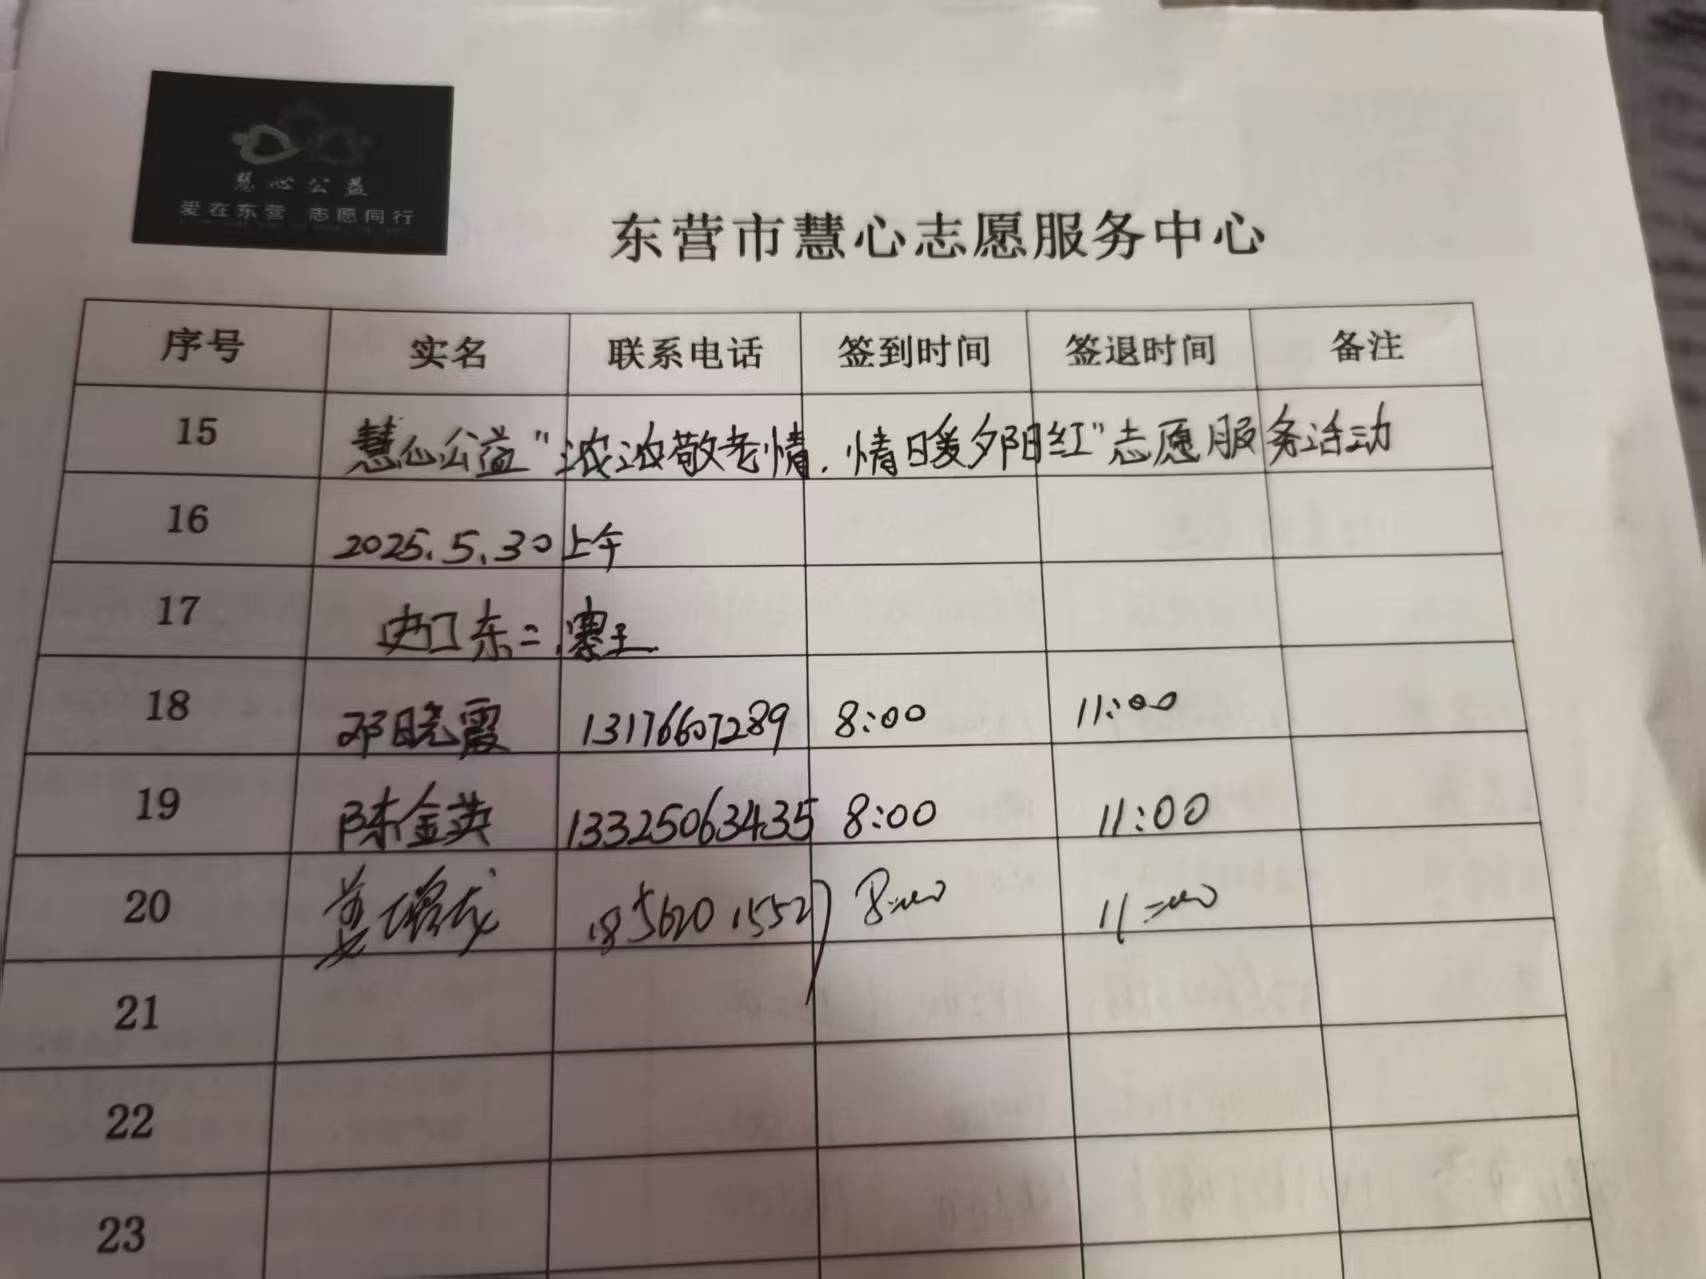 慧心公益
爱在东营 志愿同行
东营市慧心志愿服务中心
序号 实名 联系电话 签到时间 签退时间 备注
15 慧心公益"浓浓敬老情,情暖夕阳红"志愿服务活动
16 2025.5.30上午
17 史口东二.寨王
18 邓晓霞 13176607289 8:00 11:00
19 陈金英 13325063435 8:00 11:00
20 姜 8:00 11:00
21
22
23